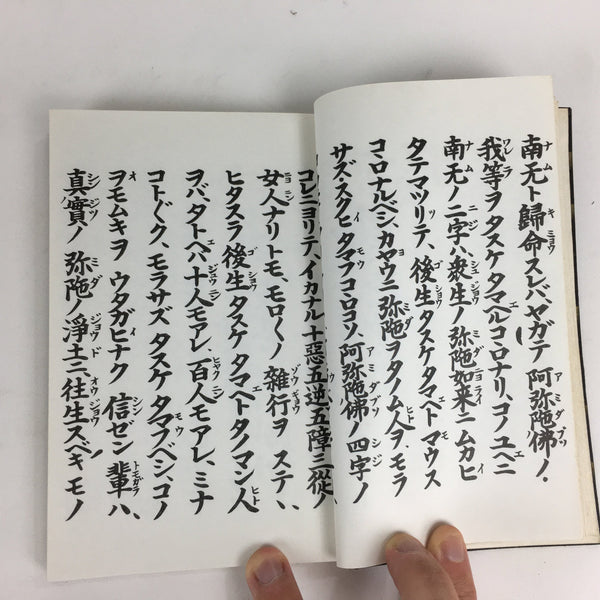 南无ト歸命スレバ、ヤガテ 阿弥陀佛ノ、
我等ヲ タスケタマヘルコヽロナリ、コノユヘニ
南无ノ二字ハ、衆生ノ 弥陀如来ニ ムカヒ
タテマツリテ、後生タスケタマヘト マウス
コヽロナルベシ、カヤウニ 弥陀ヲタノム人ヲ、モラ
サズ・スクヒ タマフコヽロコソ、阿弥陀佛ノ 四字ノ
コレニヨリテ、イカナル 十惡五逆五障三從ノ
女人ナリトモ、モロ〱ノ 雜行ヲ ステヽ、
ヒタスラ 後生 タスケ タマヘト タノマン人
ヲバ、タトヘバ 十人モアレ、百人モアレ、ミナ
コト〲ク、モラサズ タスケ タマフベシ、コノ
ヲモムキヲ ウタガヒナク 信ゼン 輩ハ、
真實ノ 弥陀ノ 淨土ニ 往生スベキ モノ